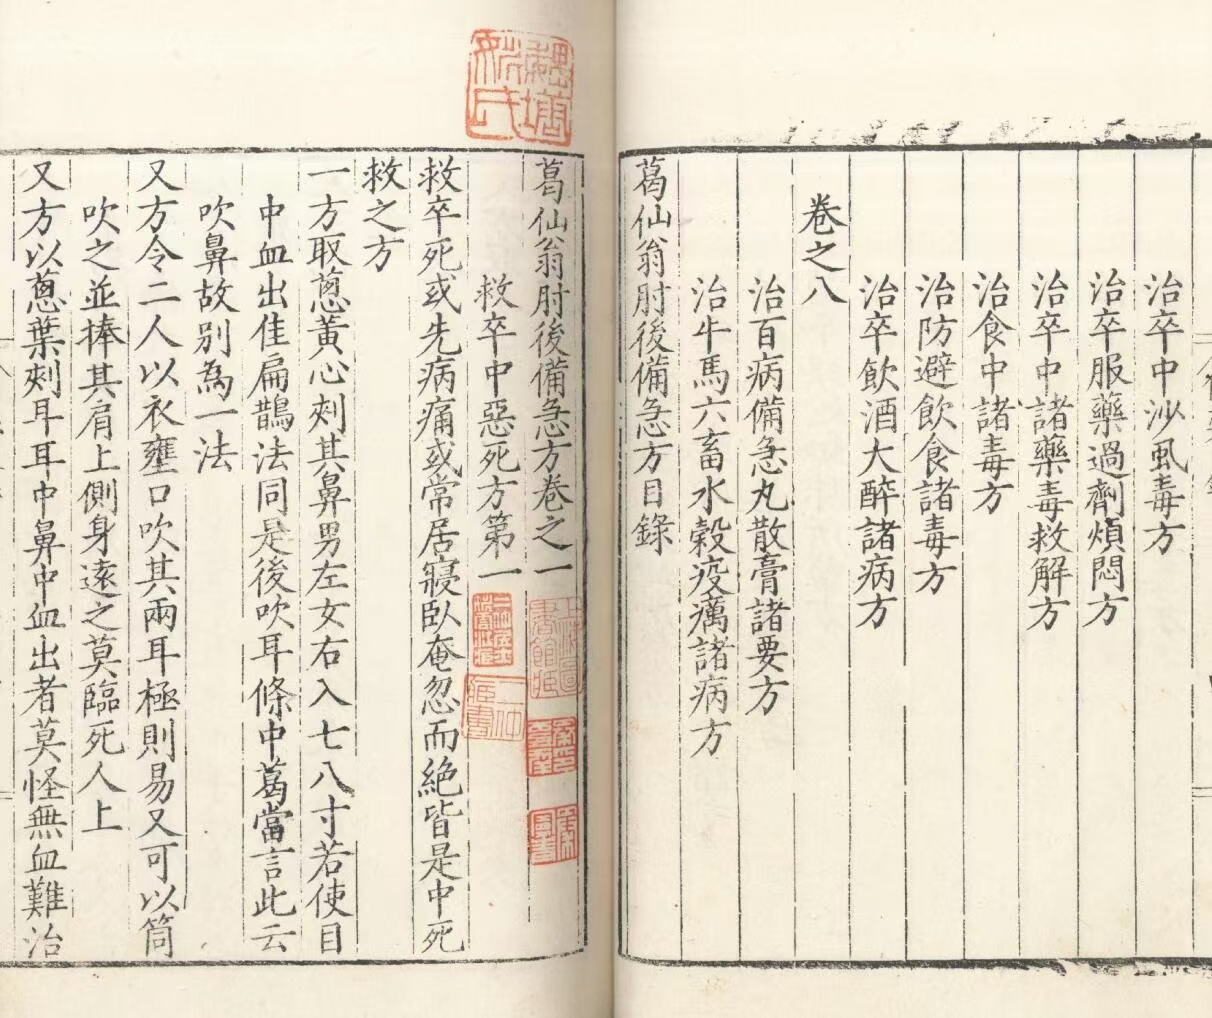 治卒中沙虱毒方
治卒服藥過劑煩悶方
治卒中諸藥毒救解方
治食中諸毒方
治防避飲食諸毒方
治卒飲酒大醉諸病方
卷之八
治百病備急丸散膏諸要方
治牛馬六畜水穀疫癘諸病方
葛仙翁肘後備急方目錄
葛仙翁肘後備急方卷之一
救卒中惡死方第一
救卒死或先病痛或常居寢臥奄忽而絕皆是中死
救之方
一方取蔥黃心刾其鼻男左女右入七八寸若使目
中血出佳扁鵲法同是後吹耳條中葛當言此云
吹鼻故别為一法
又方令二人以衣壅口吹其兩耳極則易又可以筒
吹之並捧其肩上側身遠之莫臨死人上
又方以蔥葉刾耳耳中鼻中血出者莫怪無血難治